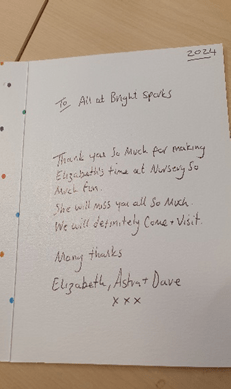 2024
To All at Bright Sparks
Thank you So Much for making
Elizabeth's time at Nursery So
Much fun.
She will miss you all So Much.
We will definitely Come + Visit.
Many thanks
Elizabeth, Astra + Dave
x x x